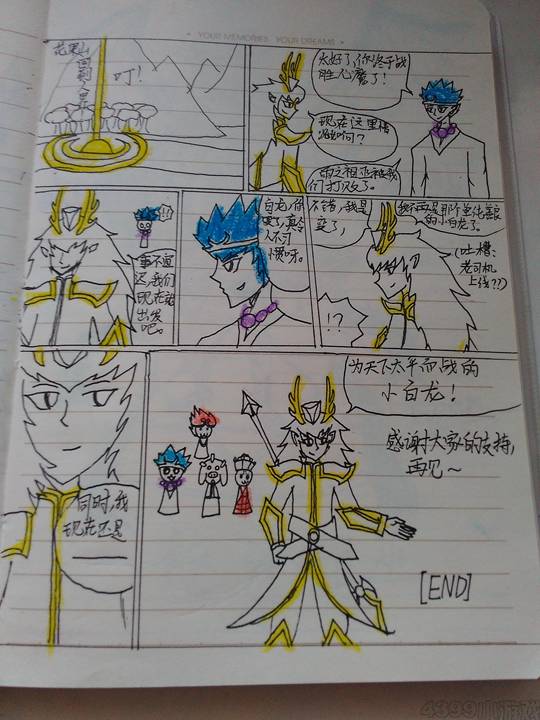 YOUR MEMORIES YOUR DREAMS
花果山
回到人界
叮!
太好了,你终于战
胜心魔了!
现在这里情
况如何?
雨之祖巫被我
们打败了。
!?
事不宜
迟,我们
现在就
出发
吧。
白龙,你
变了,真令
人不习
惯呀。
不错,我是
变了,
我不再是那个
的小白龙了。
(吐槽:
老司机
上线??)
!?
同时,我
现在还是
为天下太平而战的
小白龙!
感谢大家的支持,
再见~
[END]
4399